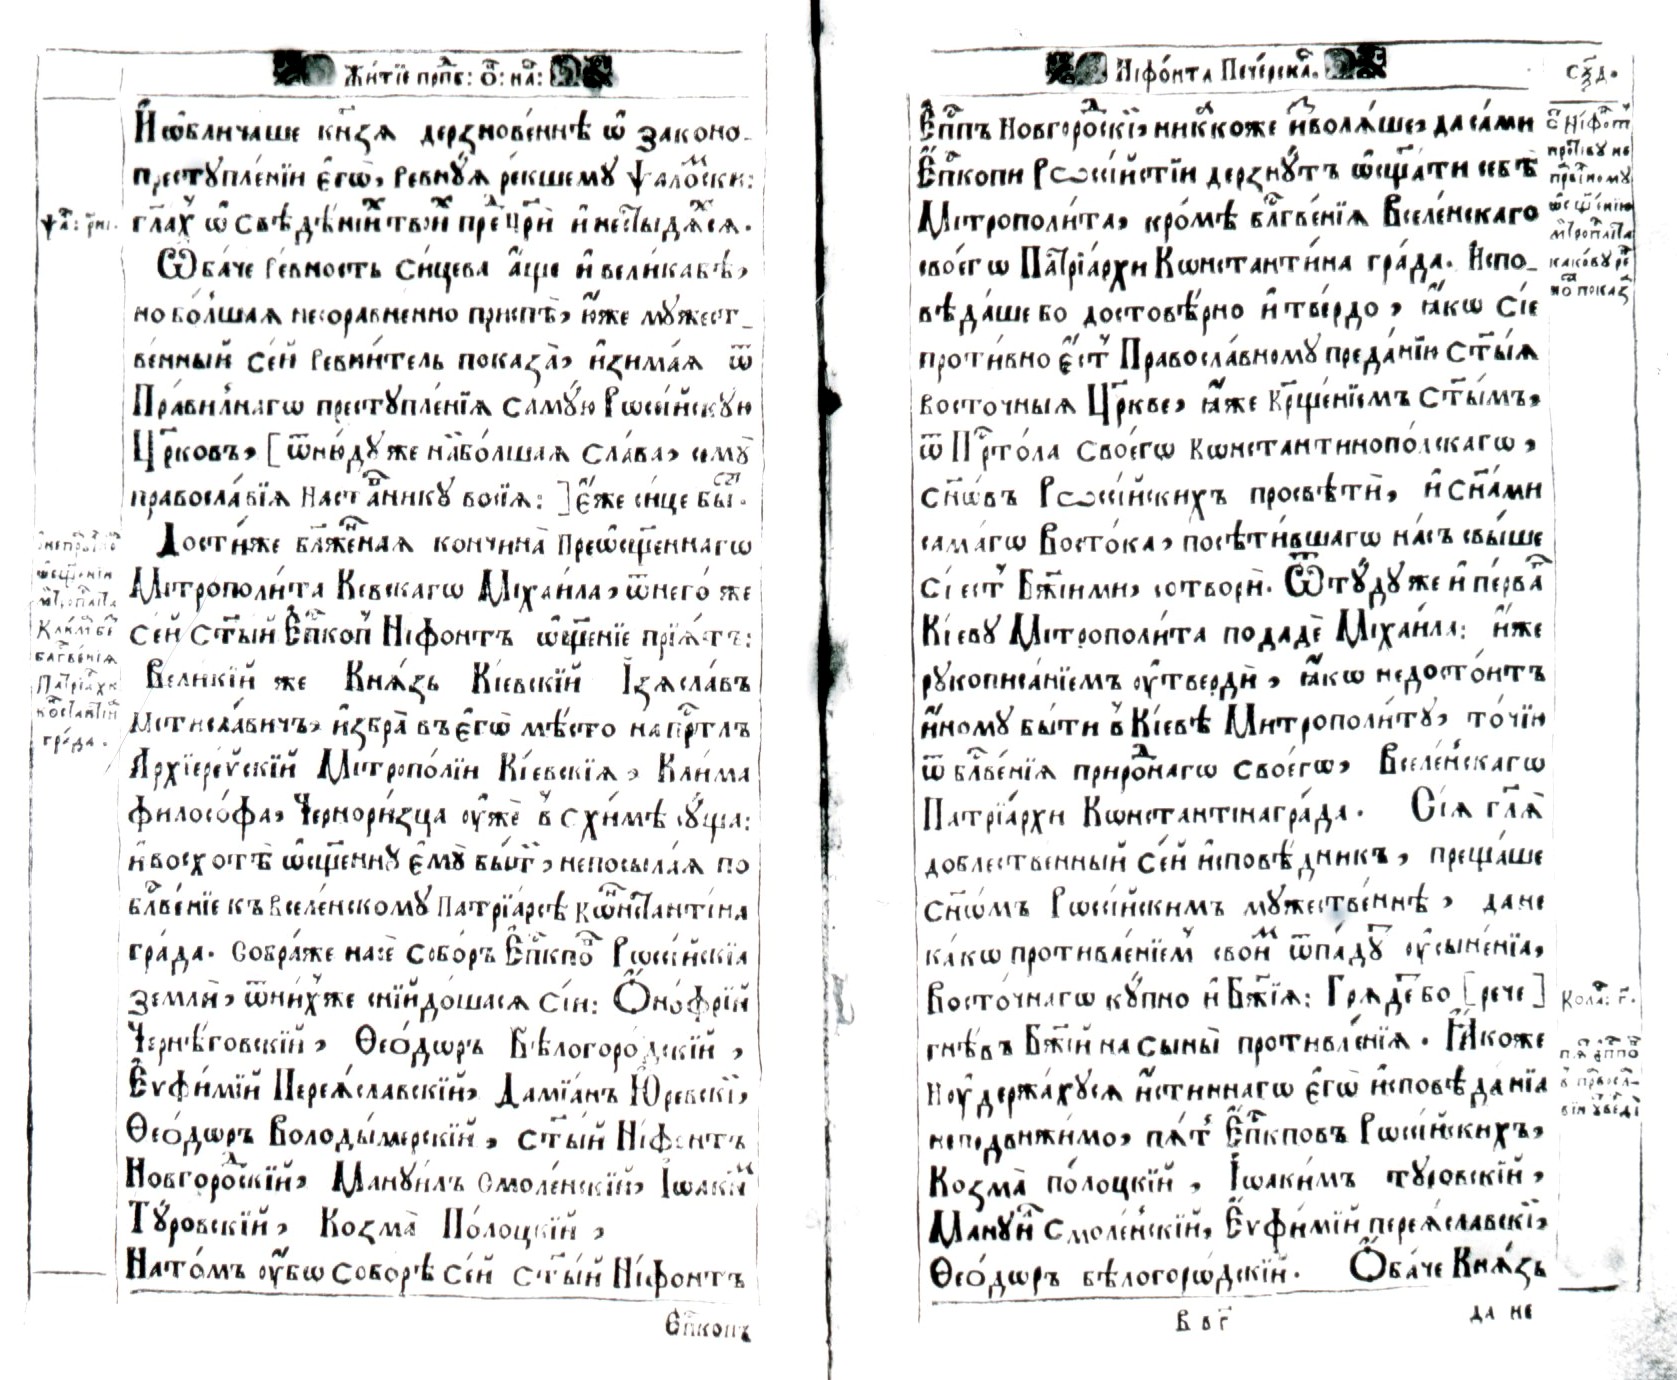 Жи́тїе прпⷣб: ѻ҃: на́:
И҆ ѡ҆блича́ше кнѧ҃зѧ дерзнове́ннѣ ѿ законо-
престꙋпле́нїи є҆гѡ̀, ревнꙋ́ѧ ре́кшемꙋ ѱало́мски:
гл҃ахъ ѡ҆ свѣдѣ́нїихъ твои́хъ преⷣ цр҃и̑ и҆ не стыдѧ́хсѧ.
Ѱаⷧ: рн҃і.
Ѻ҆ба́че ре́вность си́цева а҆́ще и҆ вели́ка бѣ̀,
но бо́лшаѧ несоравне́нно приспѣ̀, ю҆́же мꙋ́жест-
венный се́й ревни́тель показа̀, и҆зима́ѧ ѿ
Пра́вилнагѡ престꙋпле́нїѧ самꙋ́ю Рѡссі́йскꙋю
Цр҃ковъ, [ѿню́дꙋ же наибо́лшаѧ сла́ва, семꙋ̀
правосла́вїѧ наста́вникꙋ восїѧ̀:] є҆́же си́це бы́сть.
Дости́же бл҃же́ннаѧ кончи́на Преѡсщ҃е́ннагѡ
Митрополи́та Кі́евскагѡ Міхаи́ла, ѿ негѡ́ же
се́й ст҃ы́й Є҆пⷭ҇копъ Ні́фонтъ ѡ҆сщ҃е́нїе прїѧ́тъ:
Вели́кїй же Кнѧ́зь Кі́евскїй І҆зѧсла́въ
Мстисла́вичъ, и҆збра̀ въ є҆гѡ̀ мѣ́сто на прⷭ҇то́лъ
А҆рхїере́йскїй Митропо́лїи Кі́евскїѧ, Кли́ма
филосо́фа, Чернори́зца ᲂу҆жѐ в̾ схи́мѣ сꙋ́ща:
и҆ восхотѣ̀ ѡ҆сщ҃е́ннꙋ є҆мꙋ̀ бы́ти, не посыла́ѧ по
бл҃гве́нїе къ Вселе́нскомꙋ Патрїа́рсѣ Кѡнстанті́на
гра́да. Собра́ же на сѐ собо́ръ Є҆пⷭ҇кпѡвъ Рѡссі́йскїѧ
землѝ, ѿ ни́хже сні́йдошасѧ сі́и: Ѻ҆но́фрїй
Черні́говскїй, Ѳео́дѡръ Бѣлогоро́дскїй,
Є҆ѵфи́мїй Переѧ́славскїй, Дамїа́нъ Ю҆́ревскїй,
Ѳео́дѡръ Володы́мерскїй, ст҃ы́й Ні́фонтъ
Новгоро́дскїй, Манꙋи́лъ Смоле́нскїй, І҆ѡаки́мъ
Тꙋ́ровскїй, Козма̀ По́лоцкїй,
На то́мъ ᲂу҆̀бѡ собо́рѣ се́й ст҃ы́й Ні́фонтъ
Є҆пⷭ҇копъ
Ні́фонта Пече́рскаⷢ.
сѯ҃д.
Є҆пⷭ҇пъ Новгоро́дскїй, ника́коже и҆зволѧ́ше, да са́ми
Є҆пⷭ҇копи Рѡссі́йстїи дерзнꙋ́тъ ѡ҆сщ҃а́ти себѣ̀
Митрополи́та, кро́мѣ бл҃гве́нїѧ Вселе́нскаго
своегѡ̀ Патрїа́рхи Кѡнстанти́на гра́да. И҆спо-
вѣ́даше бо достовѣ́рно и҆ тве́рдо, ꙗ҆́кѡ сїѐ
проти́вно є҆́стъ Правосла́вномꙋ преда́нїю ст҃ы́ѧ
восто́чныѧ Цр҃кве, ꙗ҆́же Крщ҃е́нїемъ ст҃ы́мъ,
ѿ Прⷭ҇то́ла своегѡ̀ Кѡнстантинопо́лскагѡ,
сн҃ѡ́въ Рѡссі́йскихъ просвѣтѝ, и҆ сна́ми
самагѡ̀ Восто́ка, посѣти́вшагѡ на́съ свы́ше
сі́естъ Бж҃іими, сотворѝ. Ѿтꙋ́дꙋ же и҆ пе́рвагѡ
Кі́евꙋ Митрополи́та подадѐ Міхаи́ла: и҆́же
рꙋкописа́нїемъ ᲂу҆твердѝ, ꙗ҆́кѡ не досто́итъ
и҆́номꙋ бы́ти в̾ Кі́евѣ Митрополи́тꙋ, то́чїю
ѿ бл҃гве́нїѧ приро́днагѡ своегѡ̀, Вселе́нскагѡ
Патрїа́рхи Кѡнстантінагра́да. Сїѧ̑ гл҃ѧ̀
до́блественный се́й и҆сповѣ́дникъ, преща́ше
сн҃ѡ́мъ Рѡссі́йскимъ мꙋ́жественнѣ, да не
ка́кѡ противле́нїемъ свои́мъ ѿпадꙋ́тъ ᲂу҆сыне́нїѧ,
Восто́чнагѡ кꙋ́пно и҆ Бж҃їѧ: Грѧде́тъ бо [рече]
гнѣ́въ Бж҃їй на сыны̀ противле́нїѧ. Ꙗ҆́коже
Кола́с: г҃.
и҆ ᲂу҆держа́хꙋсѧ и҆́стиннагѡ є҆гѡ̀ и҆сповѣ́данїѧ
неподви́жимо, пѧ́тъ Є҆пⷭ҇кпѡвъ Рѡссі́йскихъ,
Козма̀ по́лоцкїй, І҆ѡаки́мъ тꙋ́ровскїй,
Манꙋи́лъ Смоле́нскїй, Є҆ѵфи́мїй переѧ́славскїй,
Ѳео́дѡръ бѣлогорѡ́дскїй. Ѻ҆ба́че Кнѧ́зь
В в г҃
да не